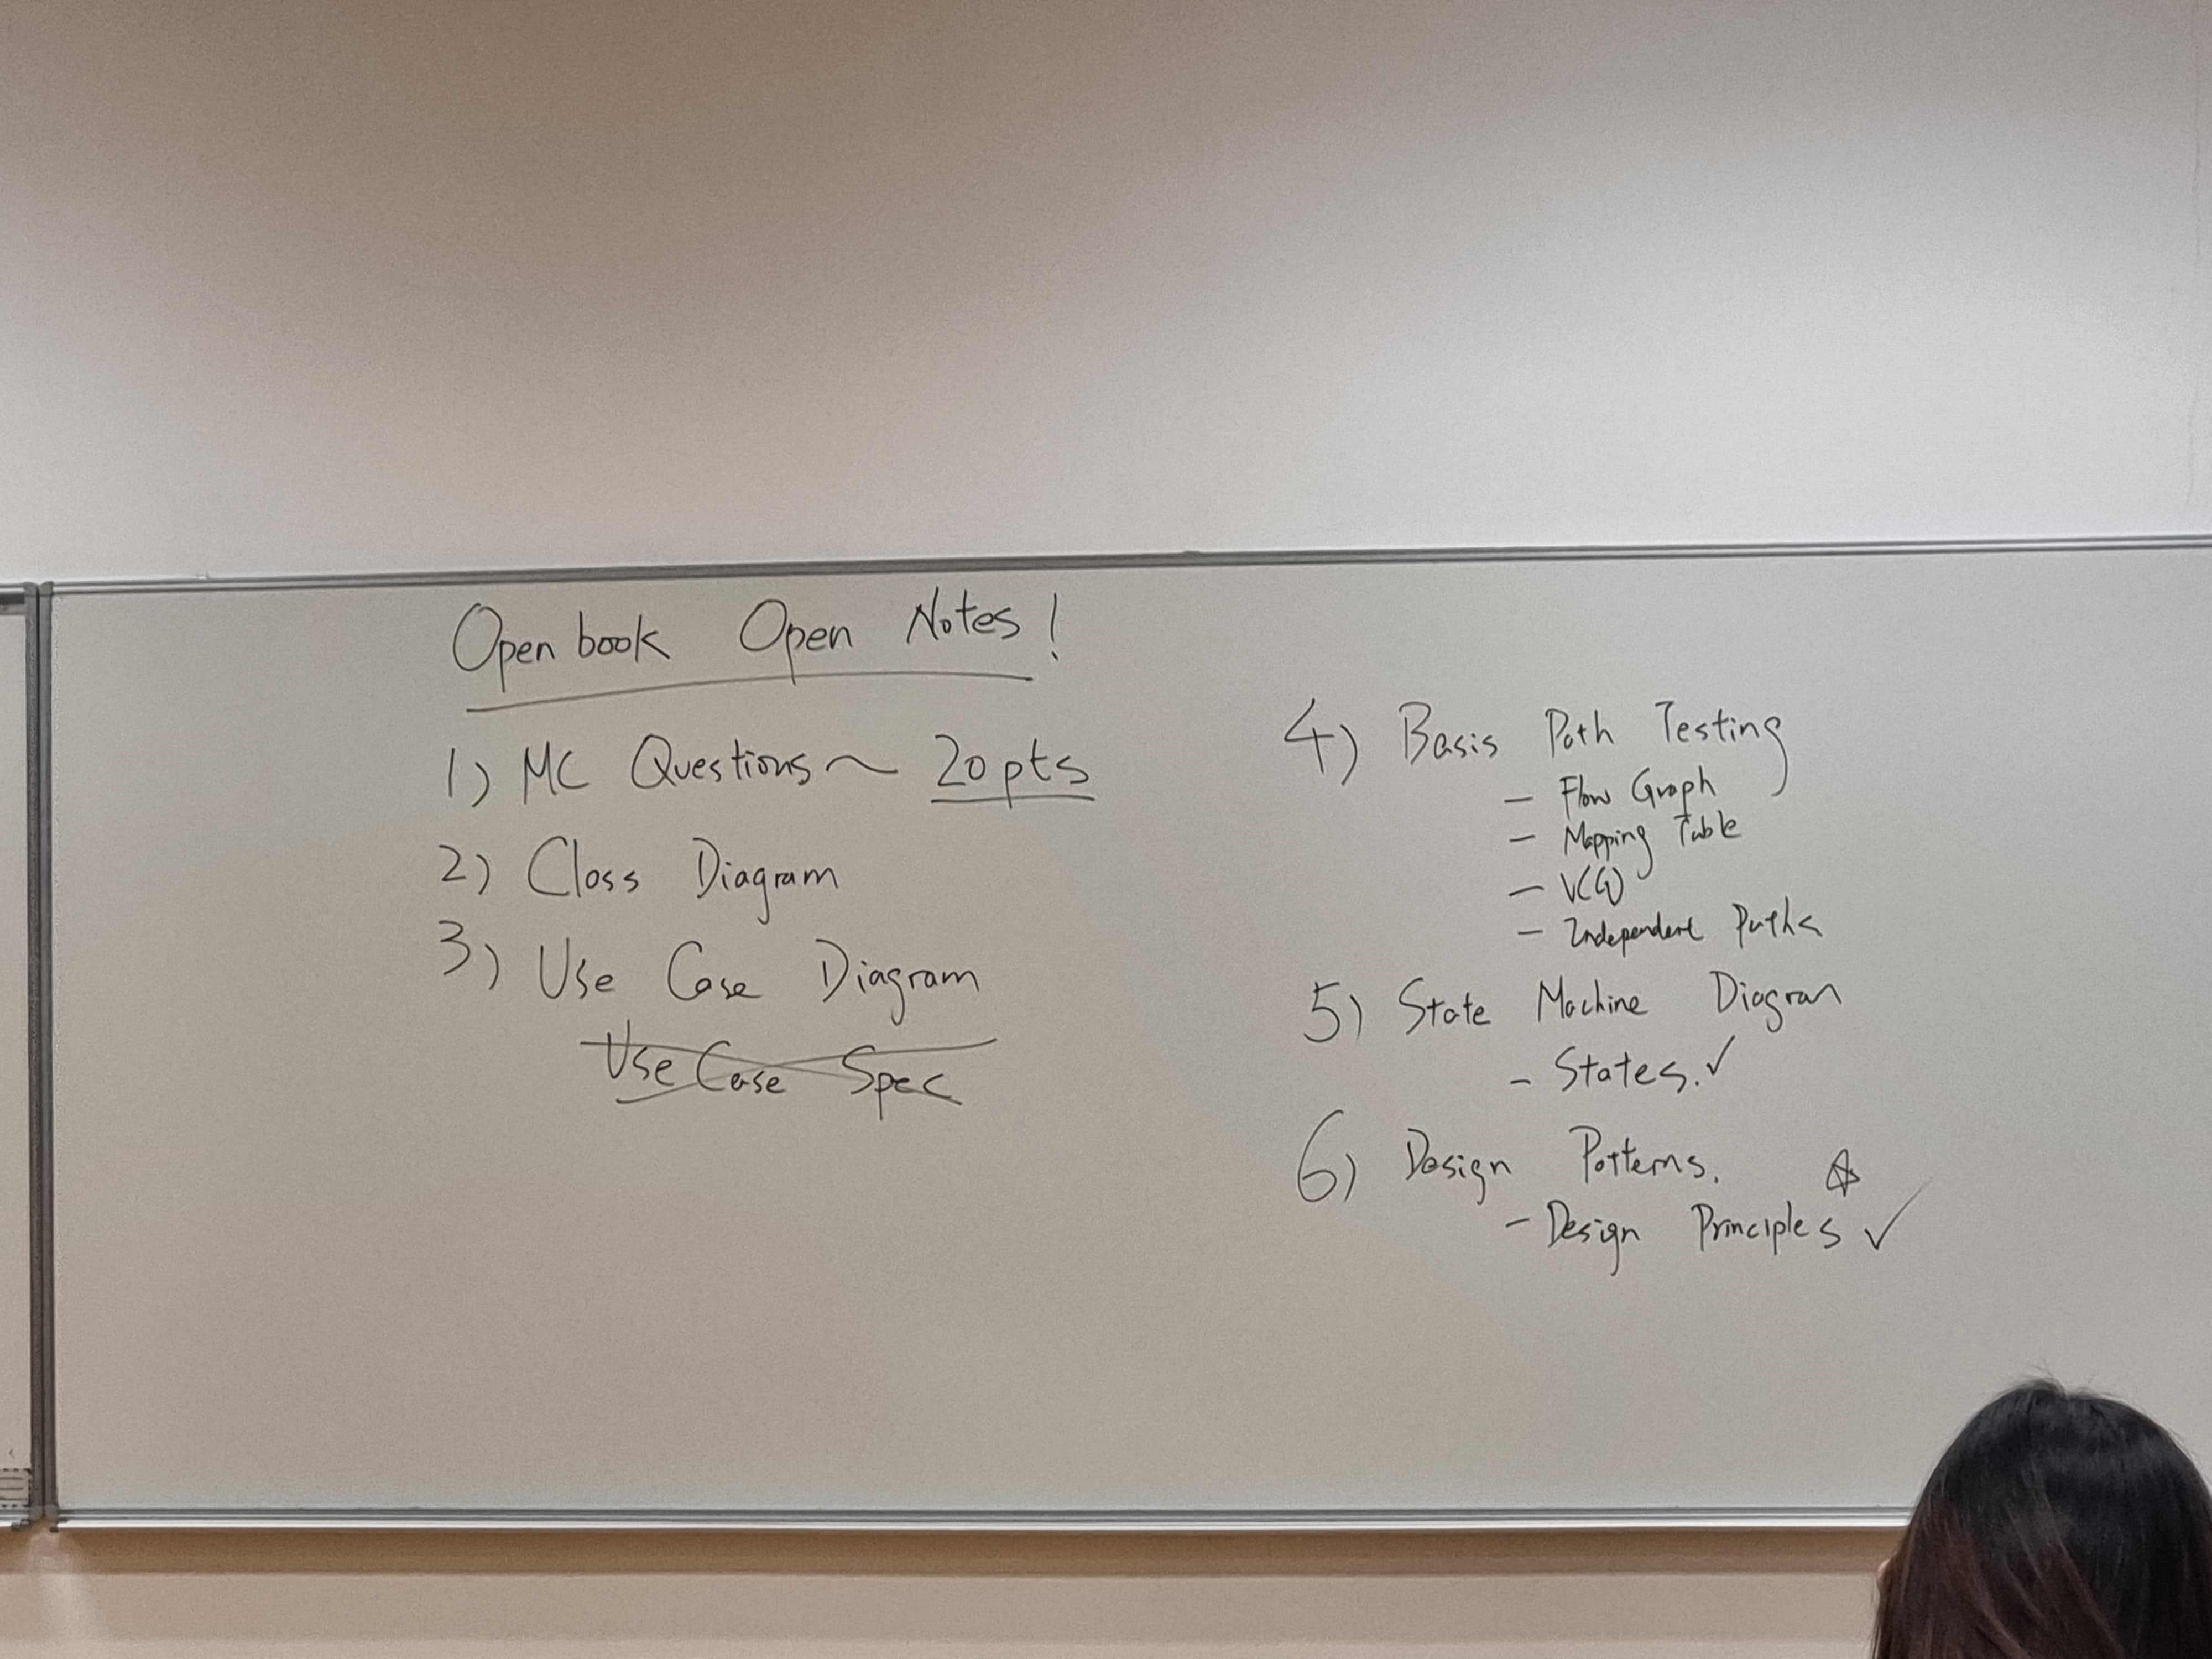 Open book Open Notes!
1) MC Questions ~ 20 pts
2) Class Diagram
3) Use Case Diagram
Use Case Spec
4) Basis Path Testing
- Flow Graph
- Mapping Table
- V(G)
- Independent Paths
5) State Machine Diagram
- States. ✓
6) Design Patterns. ☆
- Design Principles ✓